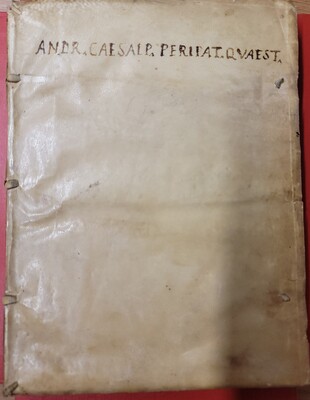 ANDR. CAESALP. PERIPAT. QVAEST.